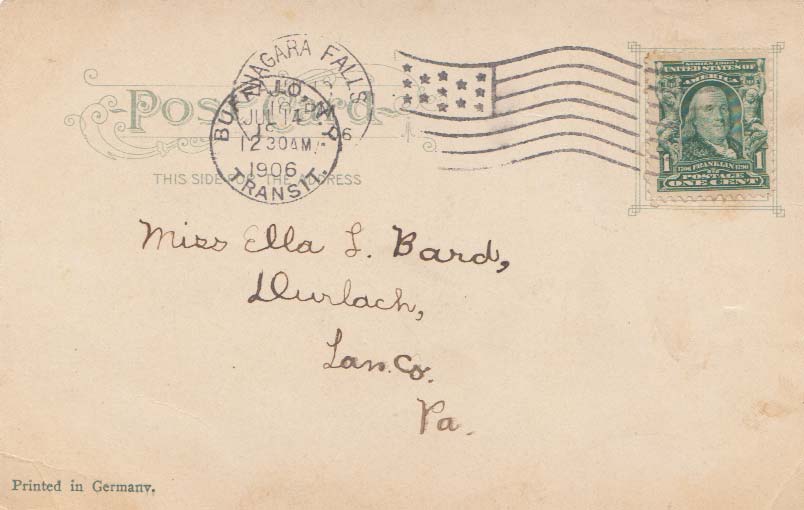 Post Card
THIS SIDE FOR THE ADDRESS
NIAGARA FALLS
BUFFALO, N.Y.
JUL 14
12 30 AM
1906
TRANSIT.
SERIES 1902
UNITED STATES OF
AMERICA
1 1706 FRANKLIN 1790 1
POSTAGE
ONE CENT
Miss Ella L. Bard,
Durlach,
Lan. Co.
Pa.
Printed in Germany.